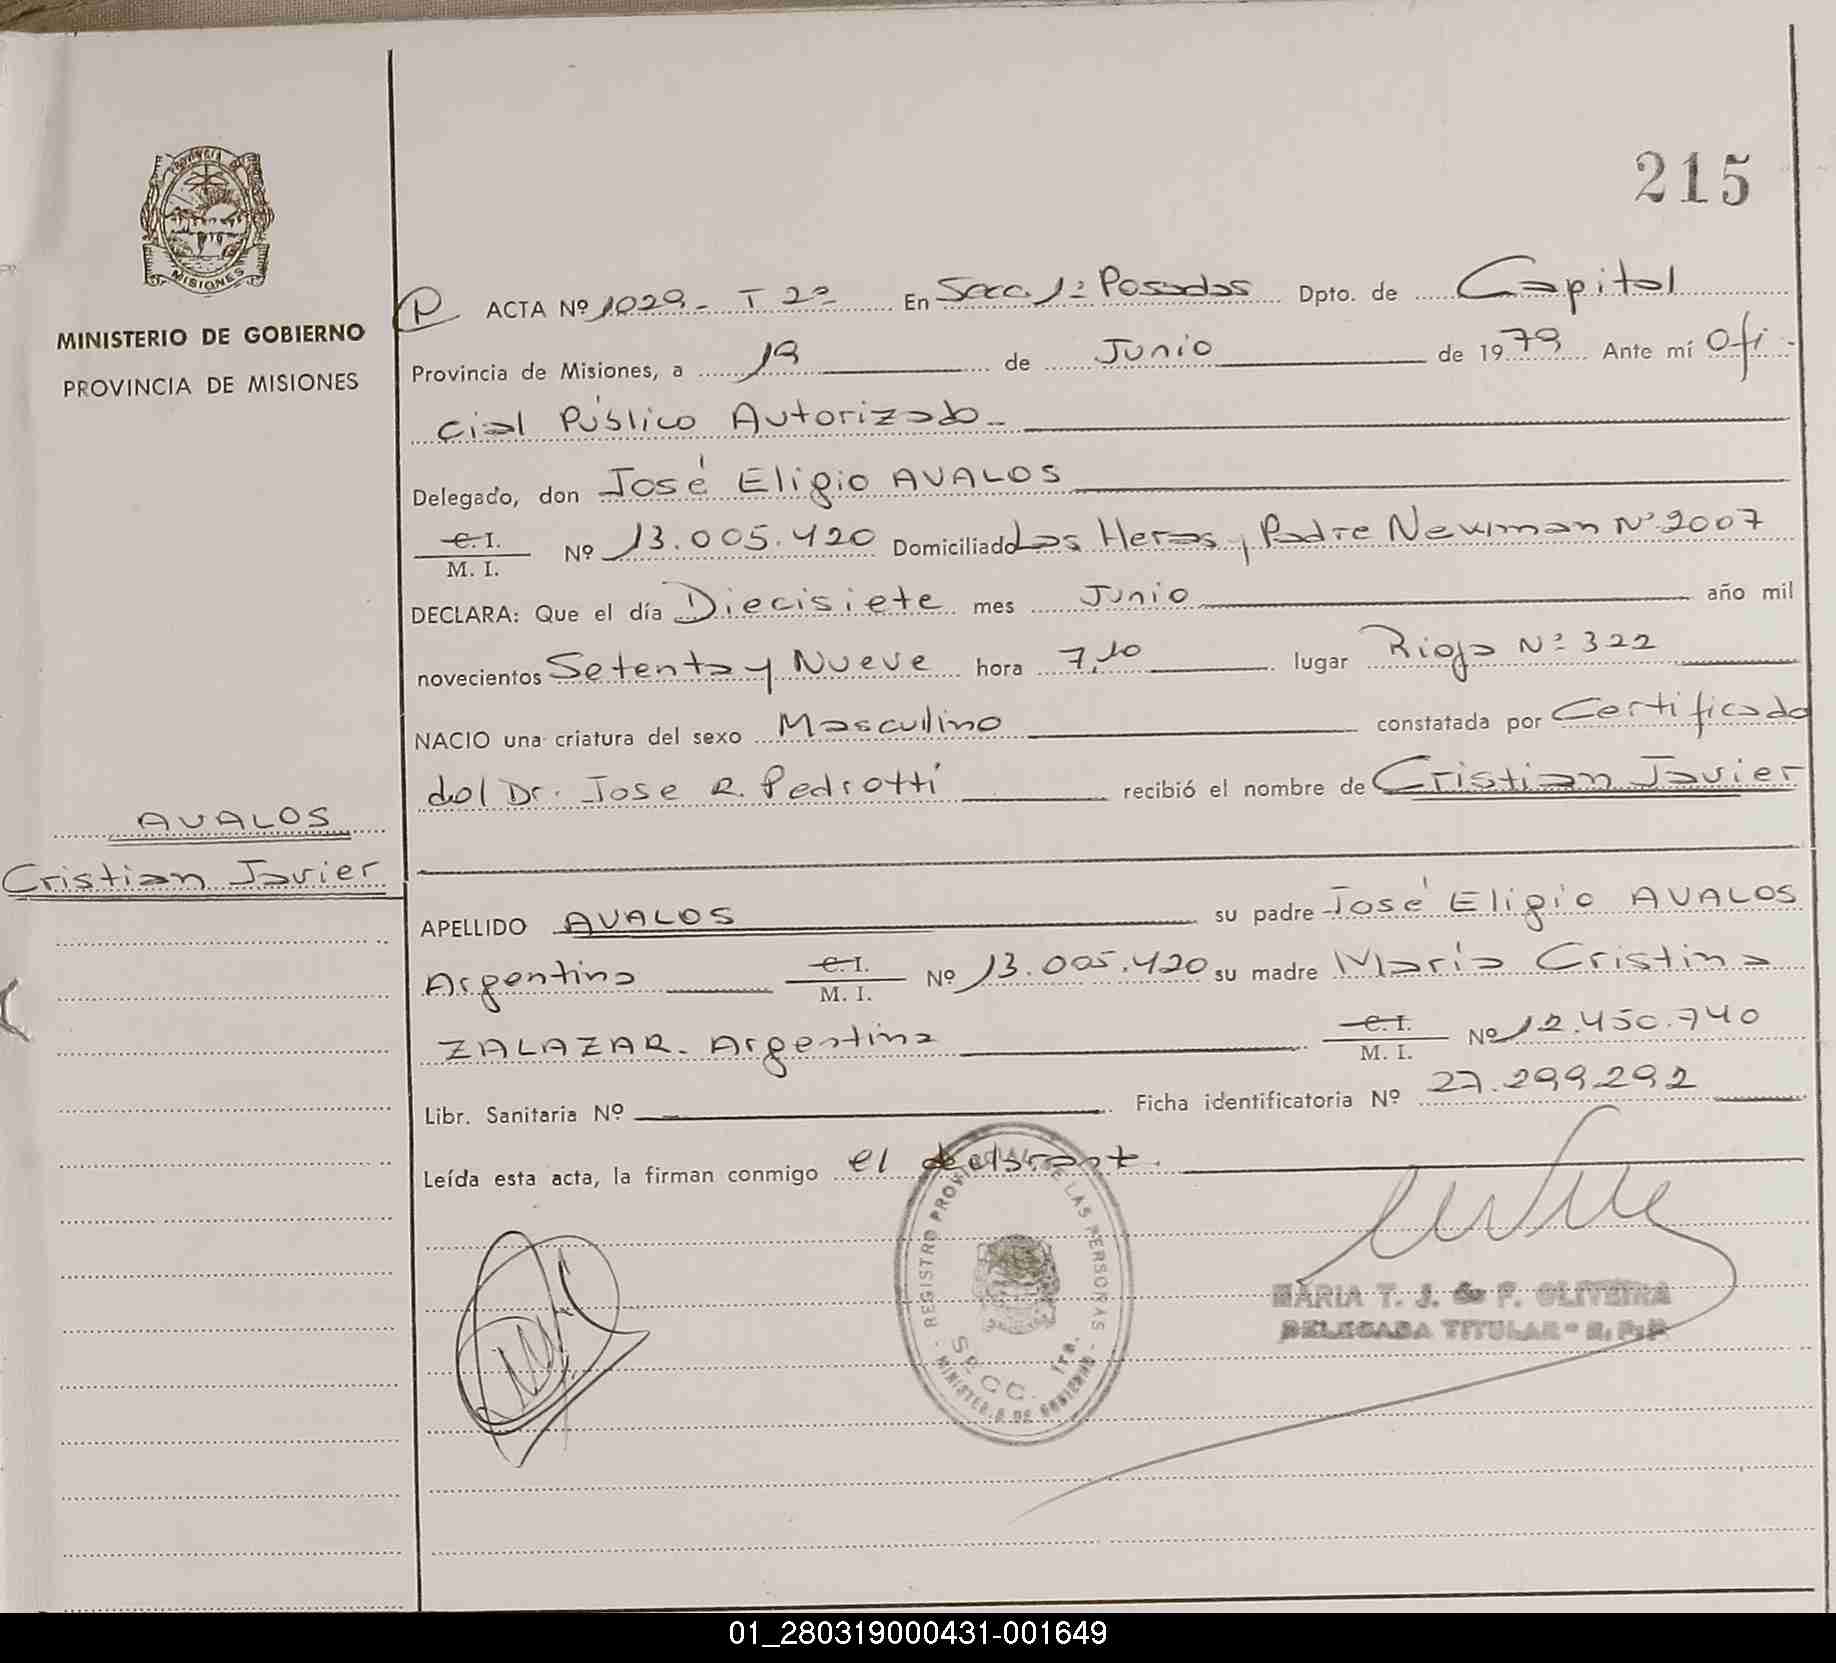 215
MISIONES
MINISTERIO DE GOBIERNO
PROVINCIA DE MISIONES
P ACTA Nº 1029 - T 2º En Secc. 1ª Posadas Dpto. de Capital
Provincia de Misiones, a 19 de Junio de 1979 Ante mí Ofi-
cial Público Autorizado
Delegado, don José Eligio AVALOS
C. I. M. I. Nº 13.005.420 Domiciliado Las Heras y Padre Newman Nº 2007
DECLARA: Que el día Diecisiete mes Junio año mil
novecientos Setenta y Nueve hora 7,10 lugar Rioja Nº 322
NACIO una criatura del sexo Masculino constatada por Certificado
del Dr. Jose R. Pedrotti recibió el nombre de Cristian Javier
AVALOS
Cristian Javier
APELLIDO AVALOS su padre José Eligio AVALOS
Argentino C. I. M. I. Nº 13.005.420 su madre María Cristina
ZALAZAR. Argentina C. I. M. I. Nº 12.450.740
Libr. Sanitaria Nº Ficha identificatoria Nº 27.299.292
Leída esta acta, la firman conmigo el declarante.
REGISTRO PROVINCIAL DE LAS PERSONAS
SECC. 1ra.
MINISTERIO DE GOBIERNO
MARIA T. J. de F. OLIVEIRA
DELEGADA TITULAR - R. P. P.
01_280319000431-001649